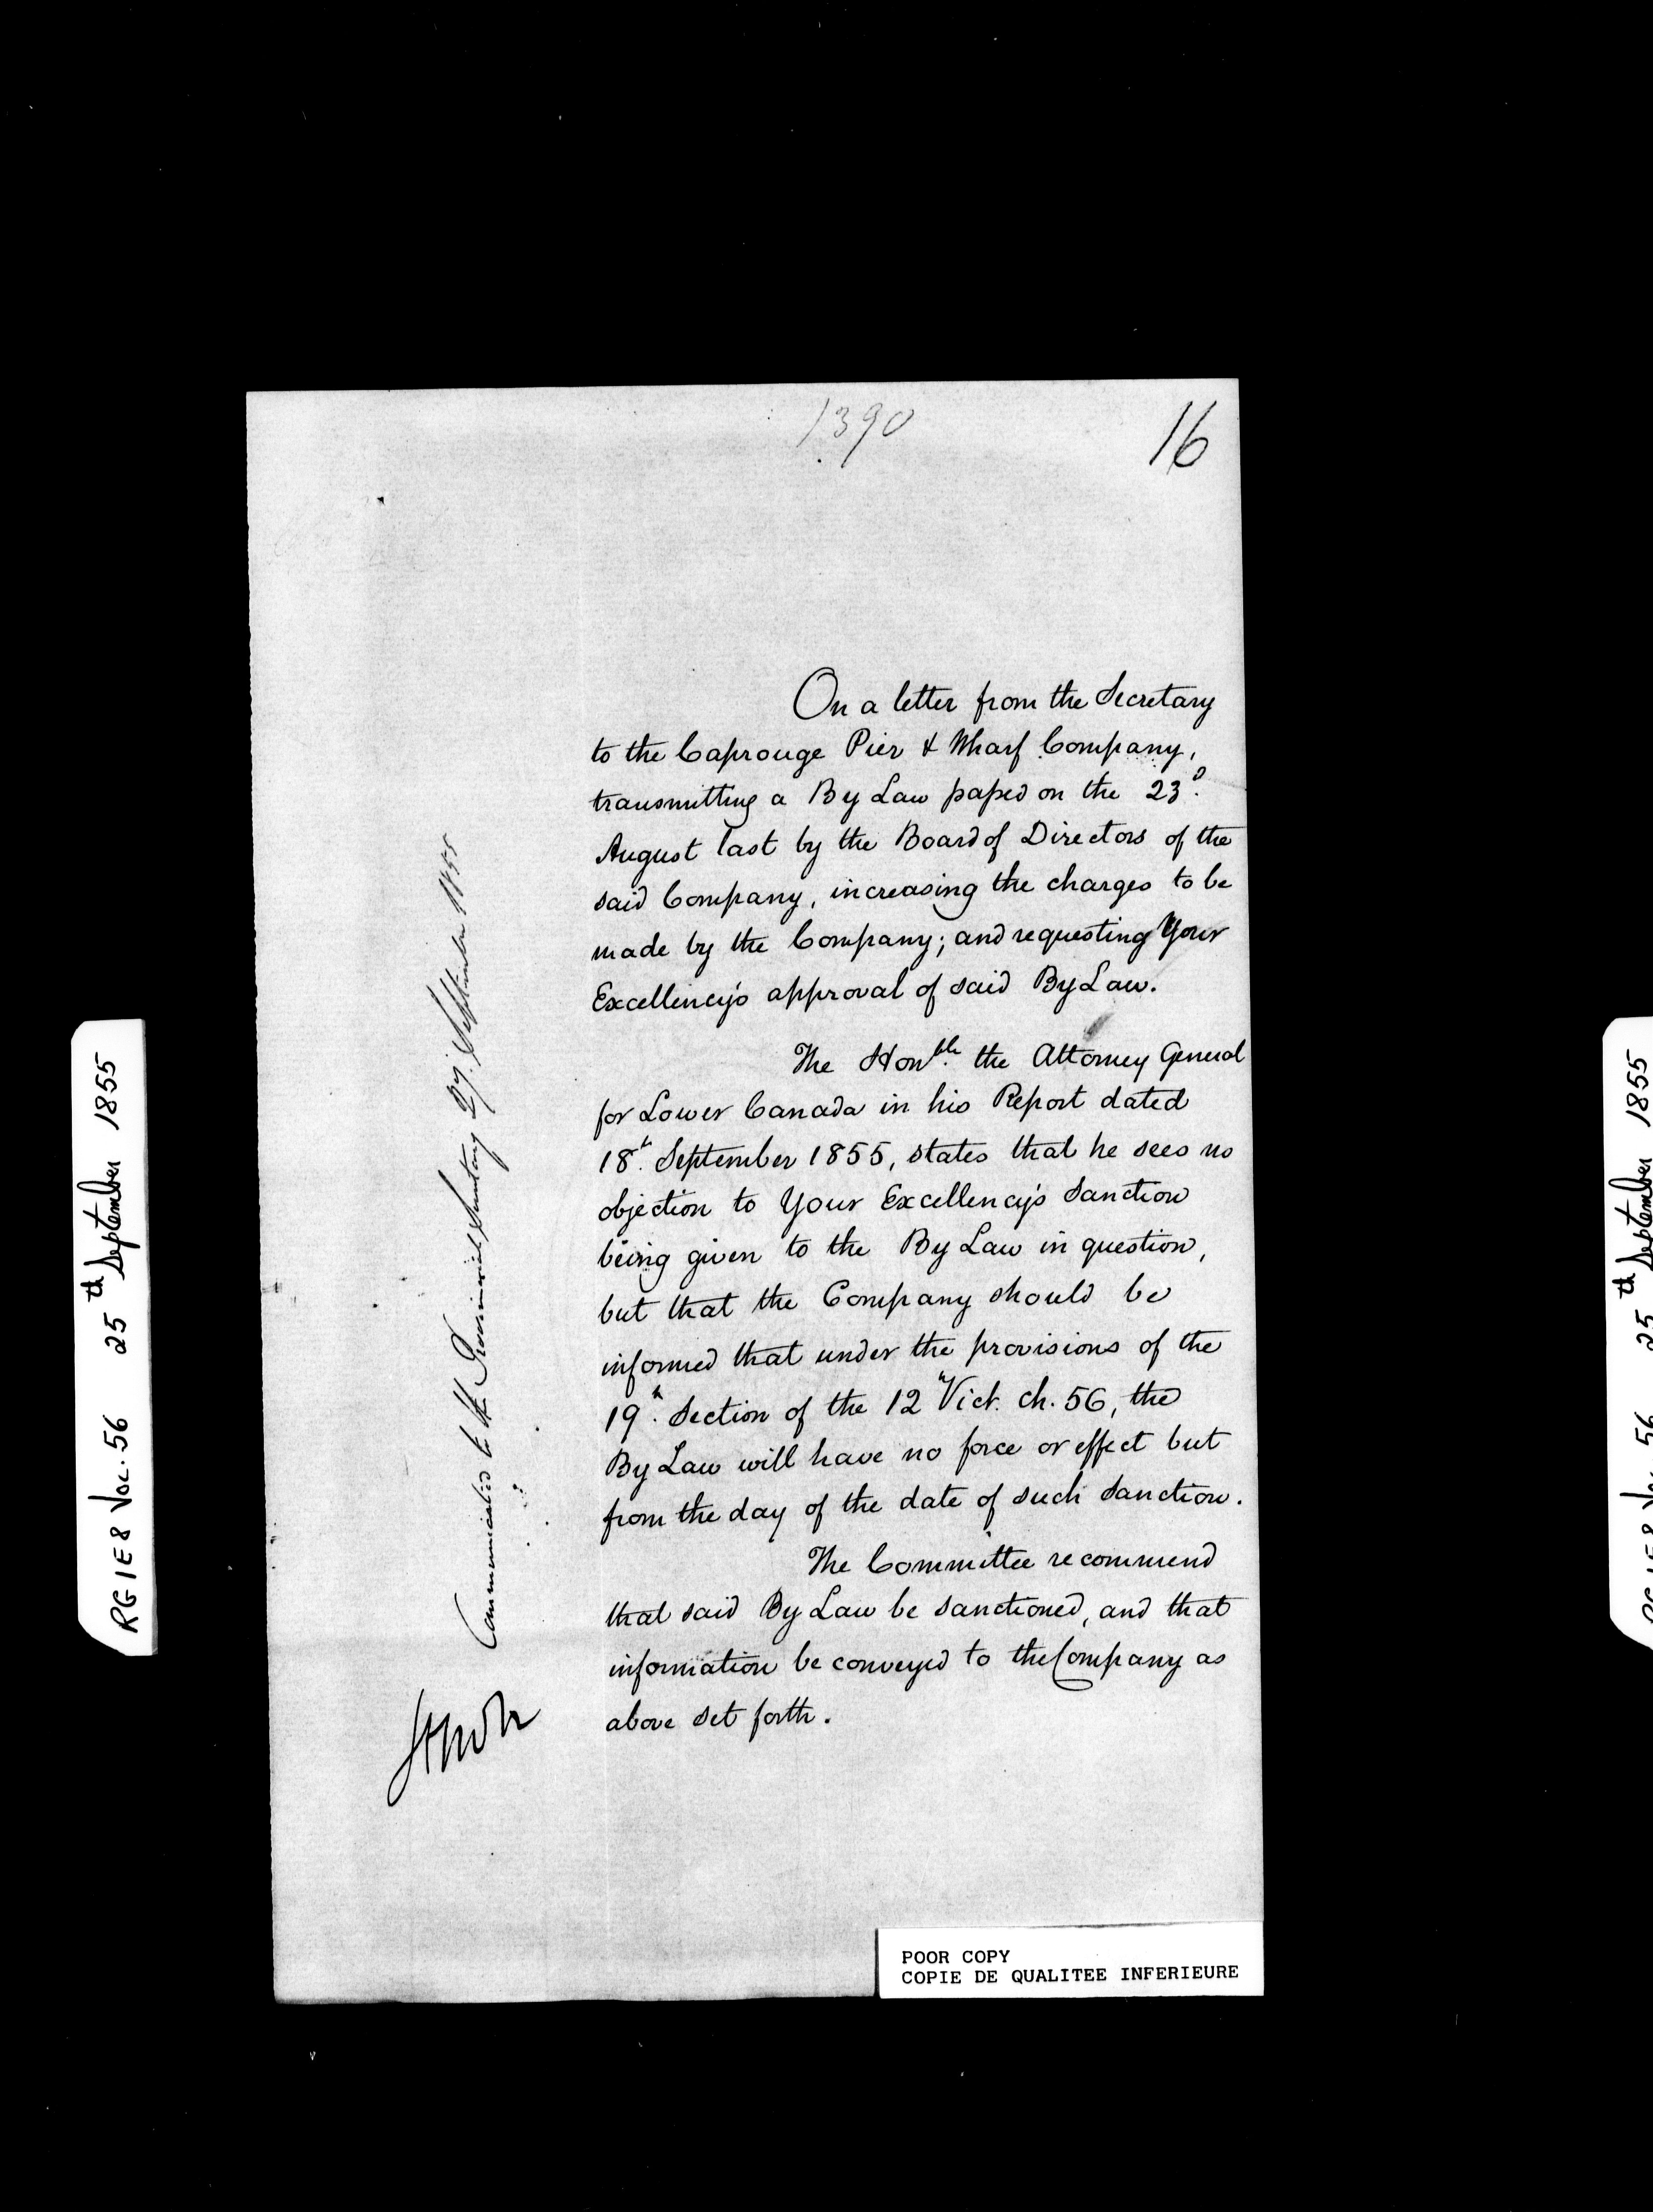 1390
16
On a letter from the Secretary
to the Caprouge Pier & Wharf Company,
transmitting a By Law passed on the 23d.
August last by the Board of Directors of the
said Company, increasing the charges to be
made by the Company; and requesting Your
Excellency's approval of said By Law.
The Honble. the Attorney General
for Lower Canada in his Report dated
18th. September 1855, states that he sees no
objection to Your Excellency's Sanction
being given to the By Law in question,
but that the Company should be
informed that under the provisions of the
19th. Section of the 12th Vict. ch. 56, the
By Law will have no force or effect but
from the day of the date of such Sanction.
The Committee recommend
that said By Law be sanctioned, and that
information be conveyed to the Company as
above set forth.
Communicated to the Provincial Secretary 27. September 1855
RG 1 E 8 Vol. 56 25th September 1855
POOR COPY
COPIE DE QUALITEE INFERIEURE
RG 1 E 8 Vol. 56 25th September 1855